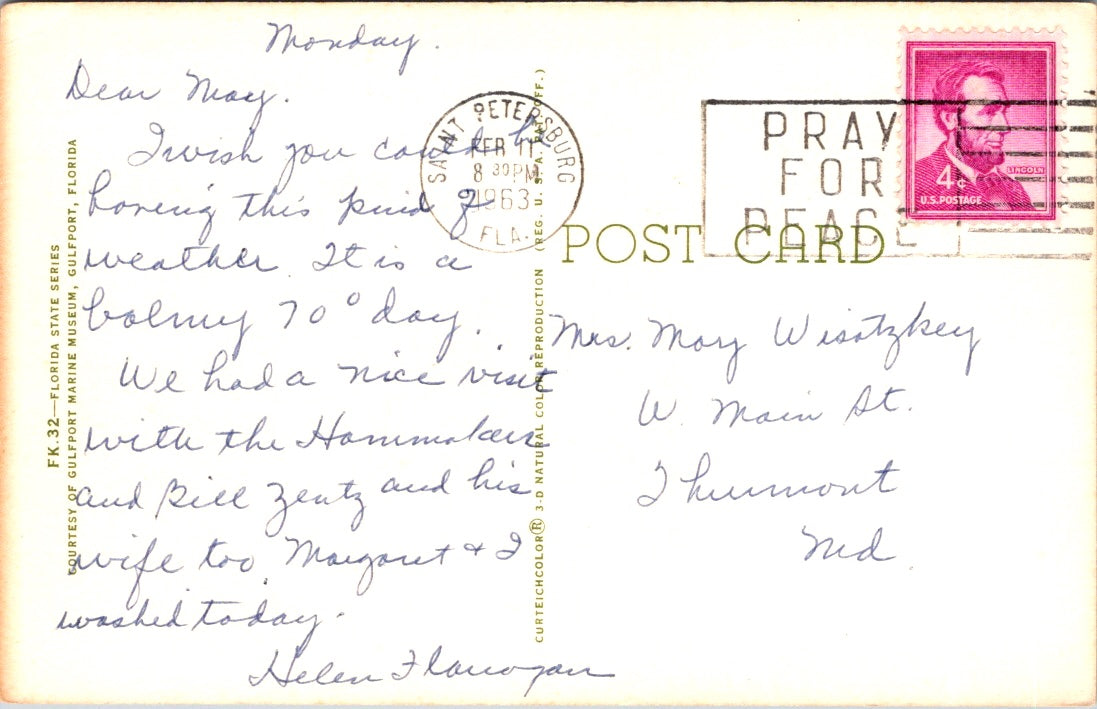 Monday.
Dear Mary.
I wish you could be
having this kind of
weather. It is a
balmy 70° day.
We had a nice visit
with the Hammakers
and Bill Zentz and his
wife too. Margaret & I
washed today.
Helen Flanagan
FK.32—FLORIDA STATE SERIES
COURTESY OF GULFPORT MARINE MUSEUM, GULFPORT, FLORIDA
SAINT PETERSBURG
FEB 11
8 30 PM
1963
FLA.
CURTEICHCOLOR® 3-D NATURAL COLOR REPRODUCTION (REG. U.S.A. PAT. OFF.)
PRAY
FOR
PEACE
LINCOLN
4¢
U.S. POSTAGE
POST CARD
Mrs. Mary Wisotzkey
W. Main St.
Thurmont
Md.